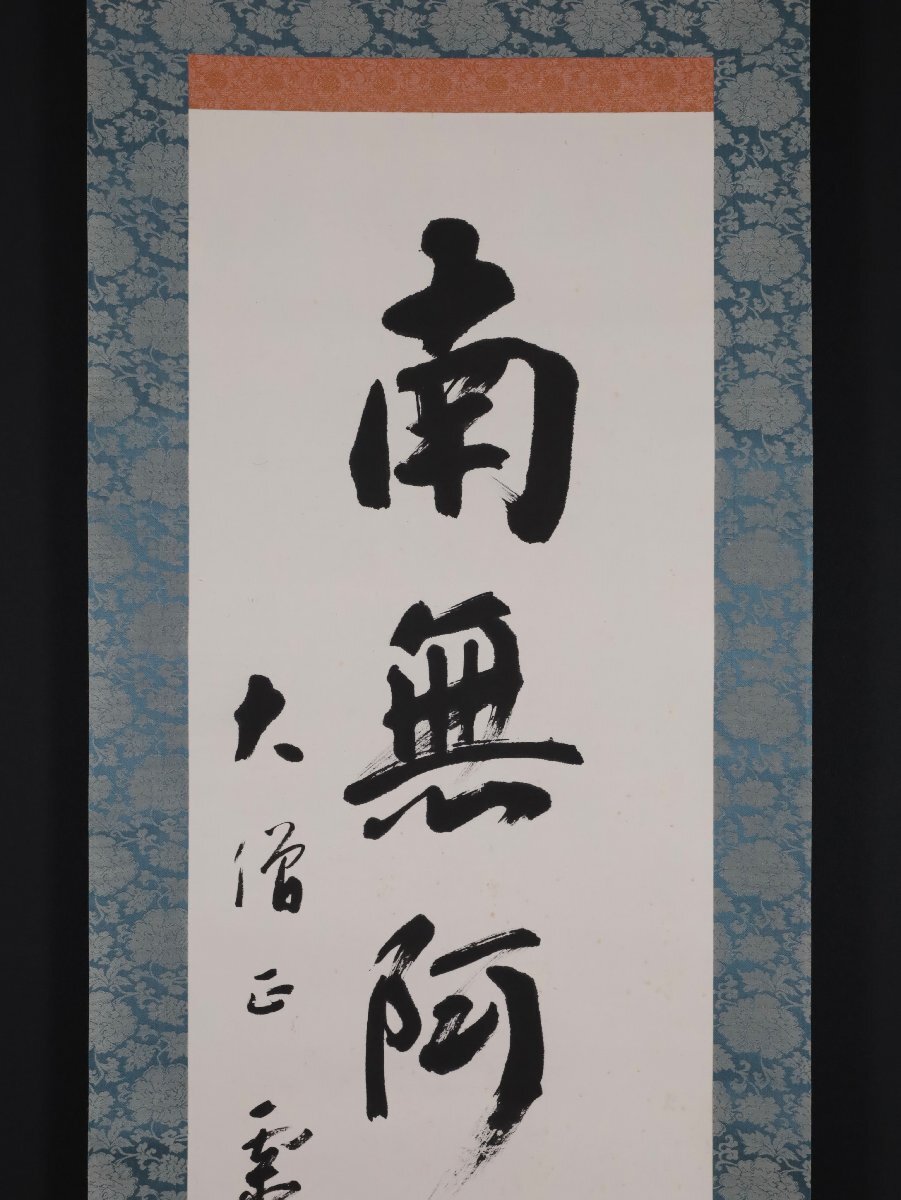 南無阿
大僧正